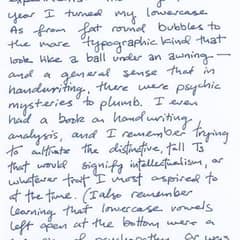 year I turned my lowercase
As from fat round bubbles to
the more typographic kind that
look like a ball under an awning—
and a general sense that in
handwriting, there were psychic
mysteries to plumb. I even
had a book on handwriting
analysis, and I remember trying
to cultivate the distinctive, tall Ts
that would signify intellectualism, or
whatever trait I most aspired to
at the time. (I also remember
learning that lowercase vowels
left open at the bottom were a
of or was